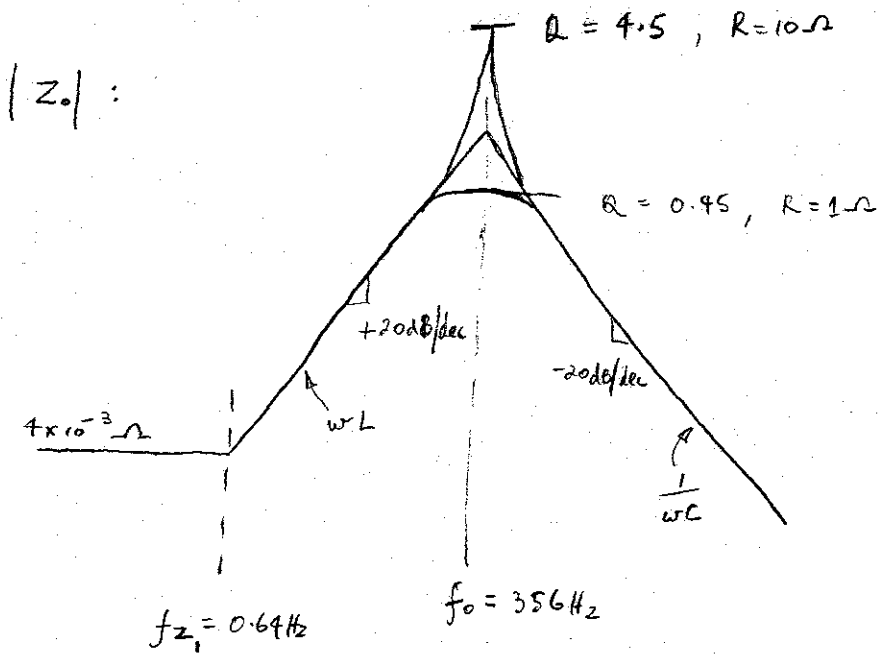 Q = 4.5 , R = 10 Ω
|Z₀| :
Q = 0.45 , R = 1 Ω
+20dB/dec
-20dB/dec
4×10⁻³ Ω
ωL
1/ωC
f_z₁ = 0.64Hz
f₀ = 356Hz